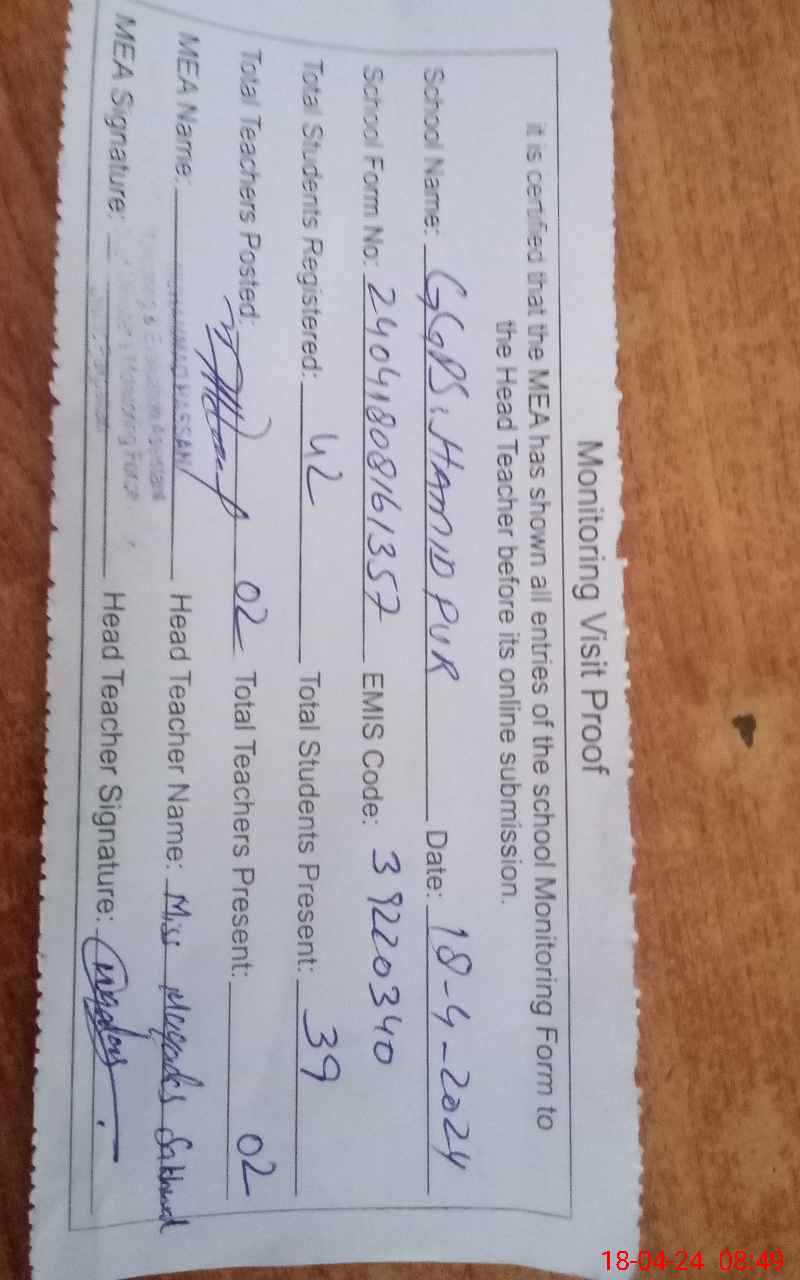 Monitoring Visit Proof
it is certified that the MEA has shown all entries of the school Monitoring Form to
the Head Teacher before its online submission.
School Name: GGPS, HAMID PUR Date: 18-4-2024
School Form No: 24041808161357 EMIS Code: 39220340
Total Students Registered: 42 Total Students Present: 39
Total Teachers Posted: 02 Total Teachers Present: 02
MEA Name: HASSAN Head Teacher Name: Miss
MEA Signature: Head Teacher Signature:
& Evaluation Assistant
Monitoring Force
18-04-24 08:49